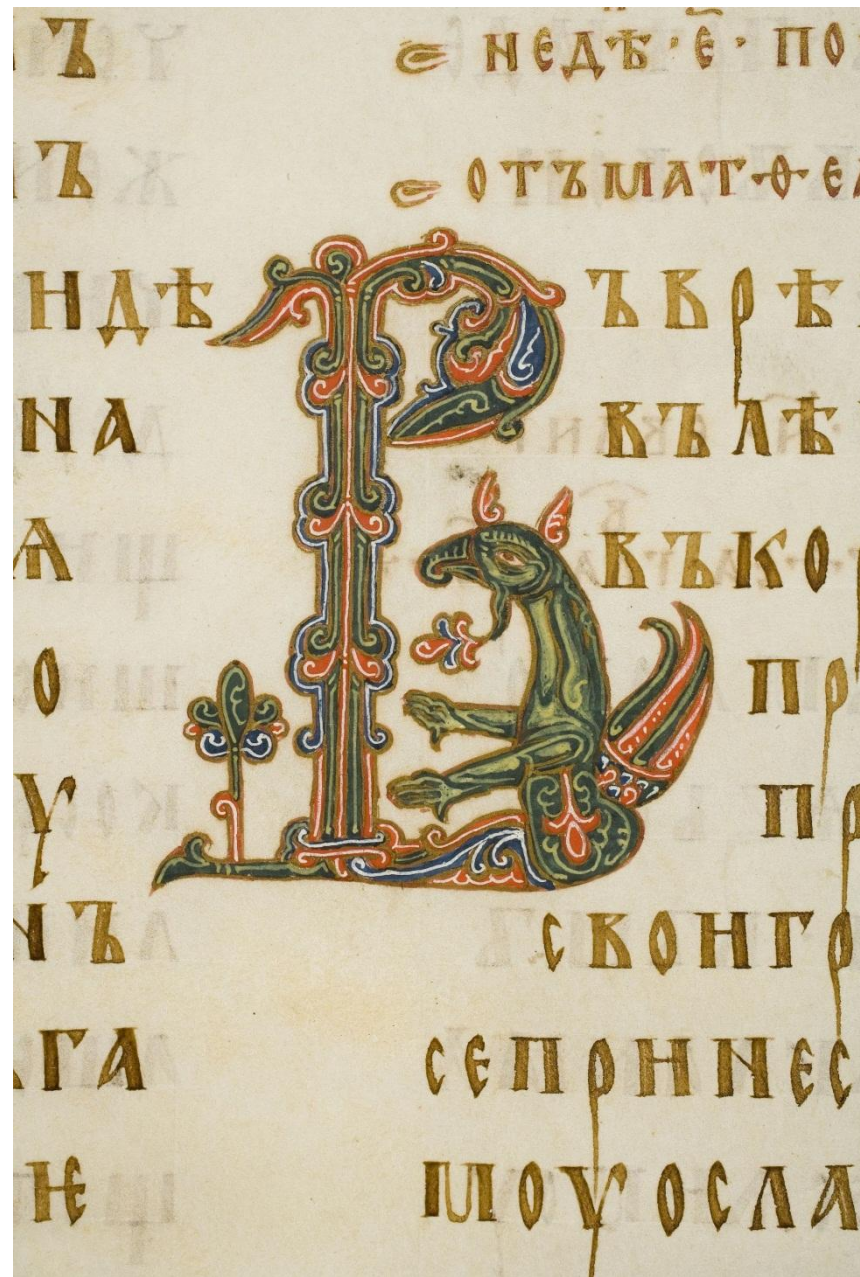 Ъ
Ъ
ИДѢ
НА
О
Ѵ
НЪ
ГА
Ѥ
НЕДѢ·Е҃·ПО
ОТЪМАТ·Ѳ·ЕА
ВЪВРѢ
ВЪЛѢ
ВЪКО
ПР
ПР
СВОИГР
СЕПРИНЕС
МОУОСЛА